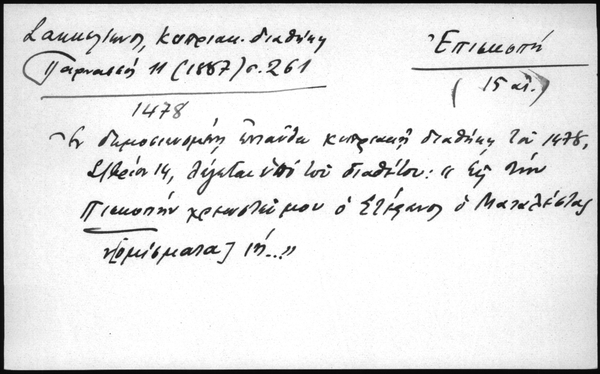 Σακκελίωνος, Κυπριακ. διαθήκη
Παρνασσῷ 11 (1887) σ. 261
Ἐπισκοπή
(15 αἰ.)
1478
Ἐν δημοσιευομένῃ ἐνταῦθα κυπριακῇ διαθήκῃ τοῦ 1478,
14, λέγεται ὑπὸ τοῦ διαθέτου: «Εἰς τὴν
Πισκοπὴν χρεωστεῖ μου ὁ Στέφανος ὁ Ματαλέστας
ν[ομίσματα] ιή...»